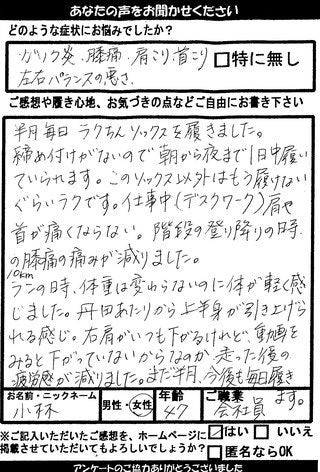 あなたの声をお聞かせください
どのような症状にお悩みでしたか？
ガリク炎、膝痛、肩こり、首こり □特に無し
左右バランスの悪さ
ご感想や履き心地、お気づきの点などご自由にお書き下さい
半月毎日 ラクちんソックスを履きました。
締め付けがないので朝から夜まで1日中履い
ていられます。このソックス以外はもう履けない
ぐらいラクです。仕事中(デスクワーク)肩や
首が痛くならない。階段の登り降りの時
の膝痛の痛みが減りました。
10km
ランの時、体重は変わらないのに体が軽く感
じました。丹田あたりから上半身が引き上げら
れる感じ。右肩がいつも下がるけれど、動画を
みると下がっていないからなのか、走った後の
疲労感が減りました。まだ半月、今後も毎日履き
ます。
お名前・ニックネーム 男性・女性 年齢 ご職業
小林 47 会社員
※ご記入いただいたご感想を、ホームページに ☑はい □いいえ
掲載させていただいてもよろしいでしょうか？ □匿名ならOK
アンケートのご協力ありがとうございました